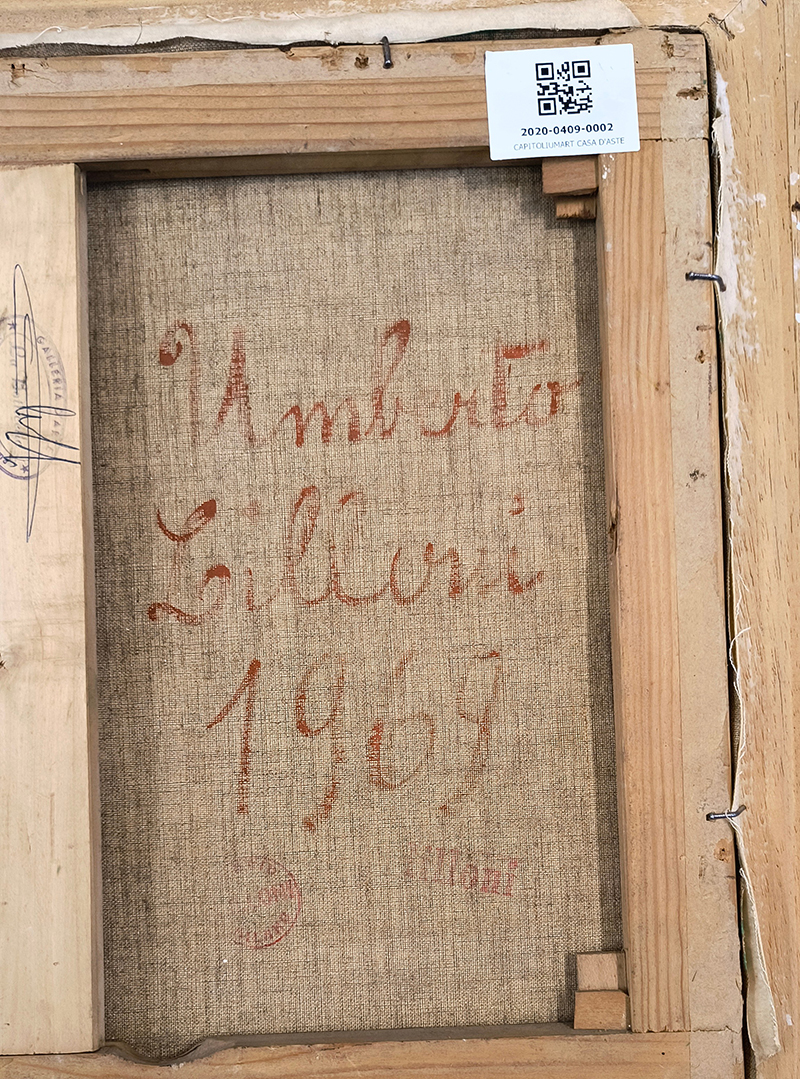 2020-0409-0002
CAPITOLIUMART CASA D'ASTE
GALLERIA
Umberto
Lilloni
1969
lilloni